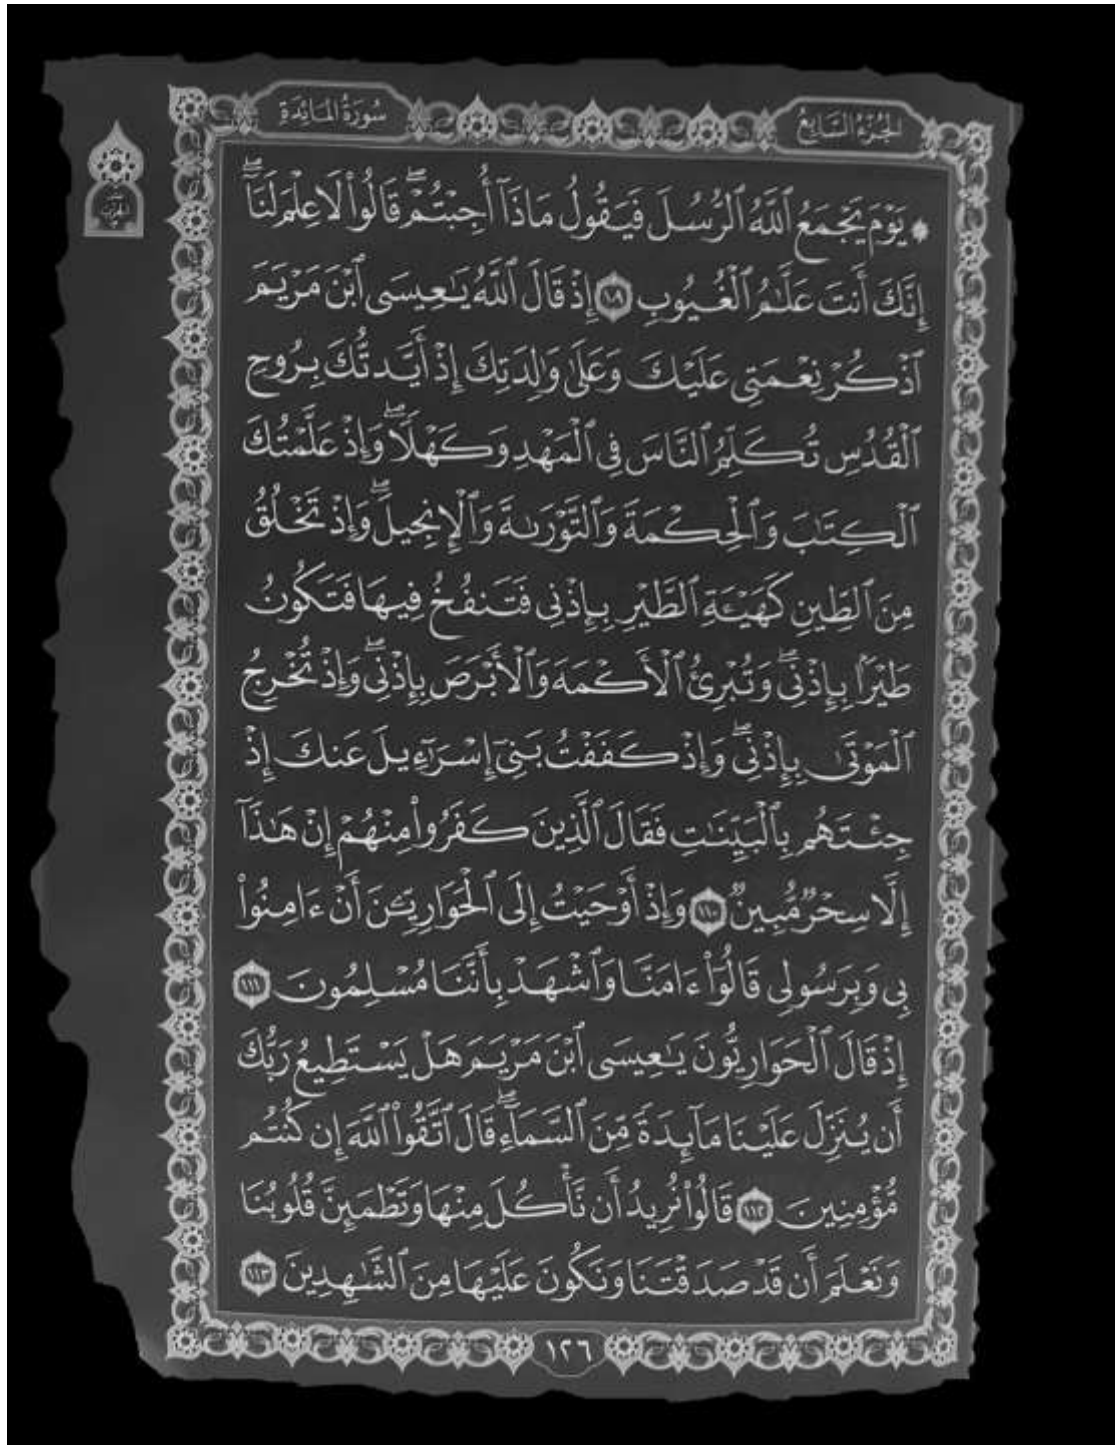 الجزء السابع
سورة المائدة
الحزب
۞ يَوْمَ يَجْمَعُ ٱللَّهُ ٱلرُّسُلَ فَيَقُولُ مَاذَآ أُجِبْتُمْۖ قَالُوا۟ لَا عِلْمَ لَنَآۖ
إِنَّكَ أَنتَ عَلَّٰمُ ٱلْغُيُوبِ ١٠٩ إِذْ قَالَ ٱللَّهُ يَٰعِيسَى ٱبْنَ مَرْيَمَ
ٱذْكُرْ نِعْمَتِى عَلَيْكَ وَعَلَىٰ وَٰلِدَتِكَ إِذْ أَيَّدتُّكَ بِرُوحِ
ٱلْقُدُسِ تُكَلِّمُ ٱلنَّاسَ فِى ٱلْمَهْدِ وَكَهْلًاۖ وَإِذْ عَلَّمْتُكَ
ٱلْكِتَٰبَ وَٱلْحِكْمَةَ وَٱلتَّوْرَىٰةَ وَٱلْإِنجِيلَۖ وَإِذْ تَخْلُقُ
مِنَ ٱلطِّينِ كَهَيْـَٔةِ ٱلطَّيْرِ بِإِذْنِى فَتَنفُخُ فِيهَا فَتَكُونُ
طَيْرًۢا بِإِذْنِىۖ وَتُبْرِئُ ٱلْأَكْمَهَ وَٱلْأَبْرَصَ بِإِذْنِىۖ وَإِذْ تُخْرِجُ
ٱلْمَوْتَىٰ بِإِذْنِىۖ وَإِذْ كَفَفْتُ بَنِىٓ إِسْرَٰٓءِيلَ عَنكَ إِذْ
جِئْتَهُم بِٱلْبَيِّنَٰتِ فَقَالَ ٱلَّذِينَ كَفَرُوا۟ مِنْهُمْ إِنْ هَٰذَآ
إِلَّا سِحْرٌ مُّبِينٌ ١١٠ وَإِذْ أَوْحَيْتُ إِلَى ٱلْحَوَارِيِّـۧنَ أَنْ ءَامِنُوا۟
بِى وَبِرَسُولِى قَالُوٓا۟ ءَامَنَّا وَٱشْهَدْ بِأَنَّنَا مُسْلِمُونَ ١١١
إِذْ قَالَ ٱلْحَوَارِيُّونَ يَٰعِيسَى ٱبْنَ مَرْيَمَ هَلْ يَسْتَطِيعُ رَبُّكَ
أَن يُنَزِّلَ عَلَيْنَا مَآئِدَةً مِّنَ ٱلسَّمَآءِۖ قَالَ ٱتَّقُوا۟ ٱللَّهَ إِن كُنتُم
مُّؤْمِنِينَ ١١٢ قَالُوا۟ نُرِيدُ أَن نَّأْكُلَ مِنْهَا وَتَطْمَئِنَّ قُلُوبُنَا
وَنَعْلَمَ أَن قَدْ صَدَقْتَنَا وَنَكُونَ عَلَيْهَا مِنَ ٱلشَّٰهِدِينَ ١١٣
١٢٦